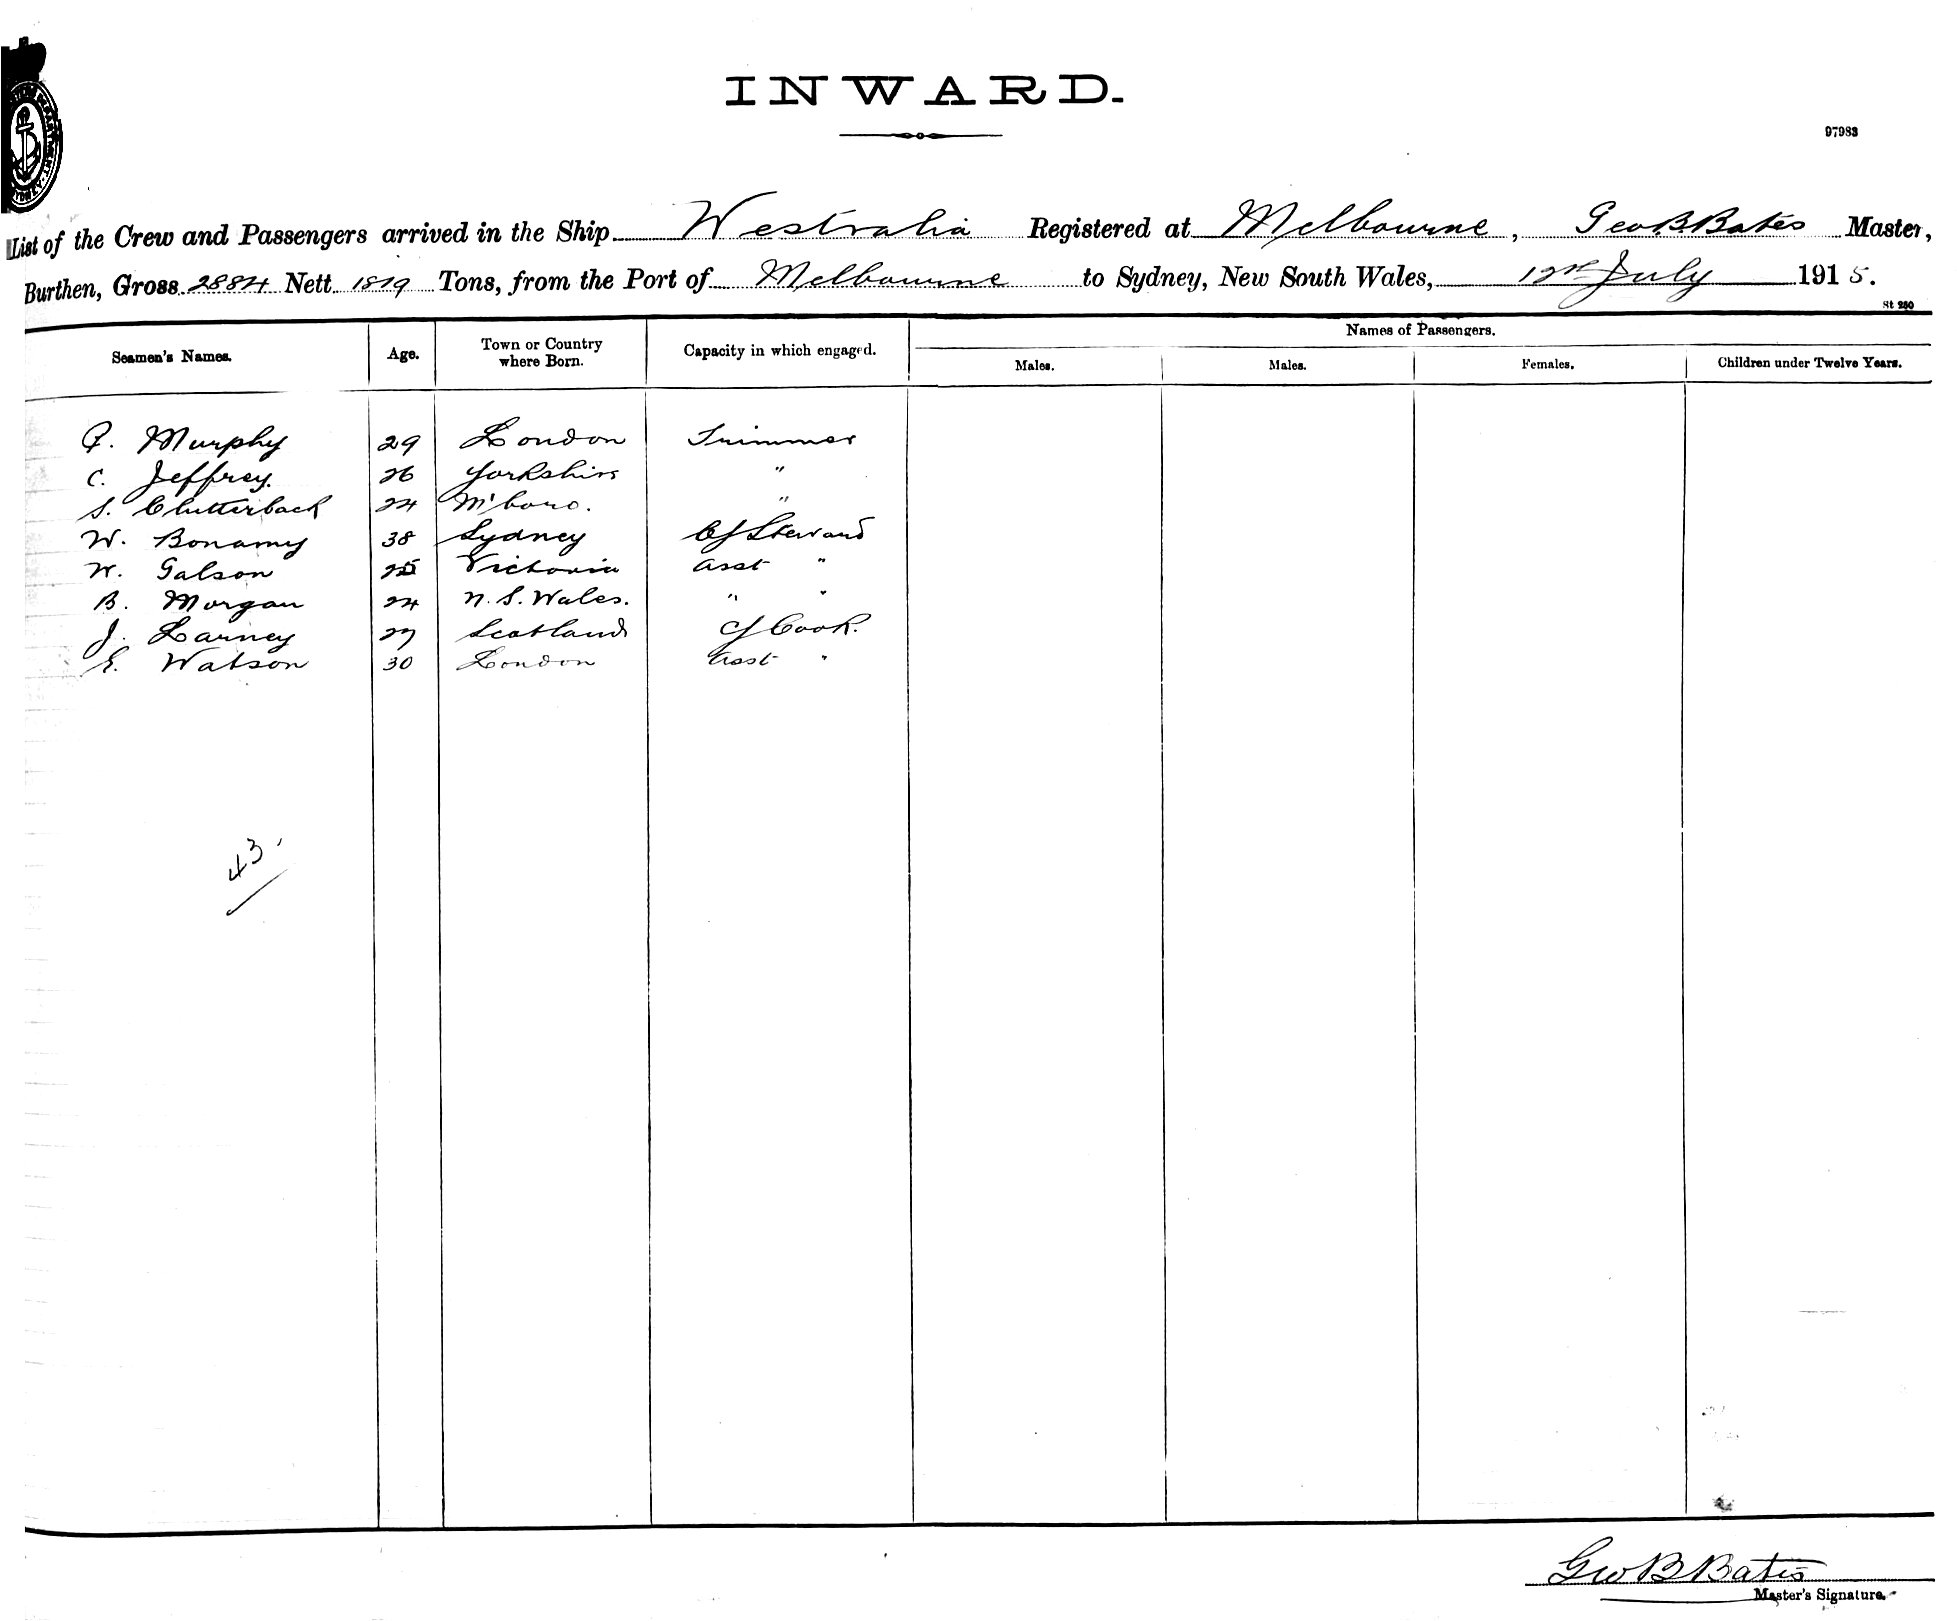 INWARD.
97983
List of the Crew and Passengers arrived in the Ship Westralia Registered at Melbourne, Geo B. Bates Master,
Burthen, Gross 2884 Nett 1819 Tons, from the Port of Melbourne to Sydney, New South Wales, 12th July 1915.
St 250
Names of Passengers.
Seamen's Names. Age. Town or Country where Born. Capacity in which engaged. Males. Males. Females. Children under Twelve Years.
Murphy 29 London Trimmer
C. Jeffrey. 26 Yorkshire "
S. Clutterback 24 M'boro. "
W. Bonamy 38 Sydney Cf Steward
W. Galson 25 Victoria Asst "
B. Morgan 24 N. S. Wales. " "
J. Larney 27 Scotland Cf Cook.
E. Watson 30 London Asst "
43
Geo B Bates
Master's Signature.